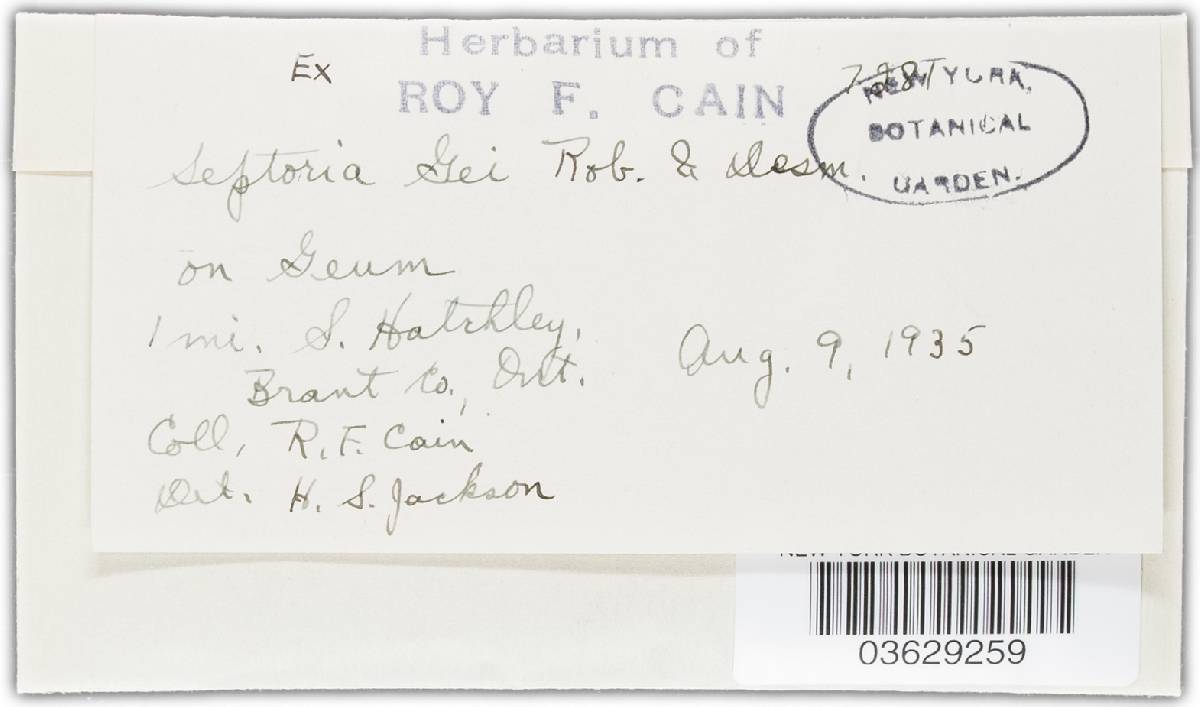 Herbarium of
Ex
ROY F. CAIN
NEW YORK
BOTANICAL
GARDEN.
Septoria Gei Rob. & Desm.
on Geum
1 mi. S. Hatchley,
Brant Co., Ont.
Aug. 9, 1935
Coll, R. F. Cain
Det. H. S. Jackson
NEW YORK BOTANICAL GARDEN
03629259